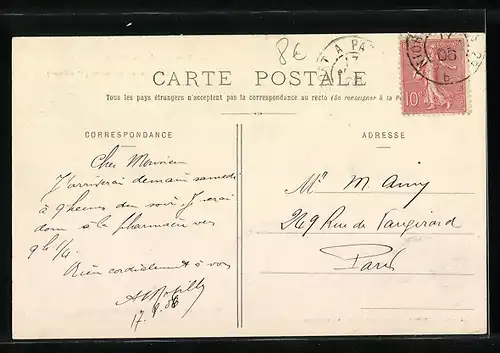 8€
CARTE POSTALE
Tous les pays étrangers n'acceptent pas la correspondance au recto (Se renseigner à la
CORRESPONDANCE
ADRESSE
Cher Monsieur
J'arriverai demain samedi
à 9 heures du soir. Je serai
donc à la pharmacie vers
9h 1/4
Bien cordialement à vous
17
Mr M.
249 Rue de Vaugirard
Paris
10c
05